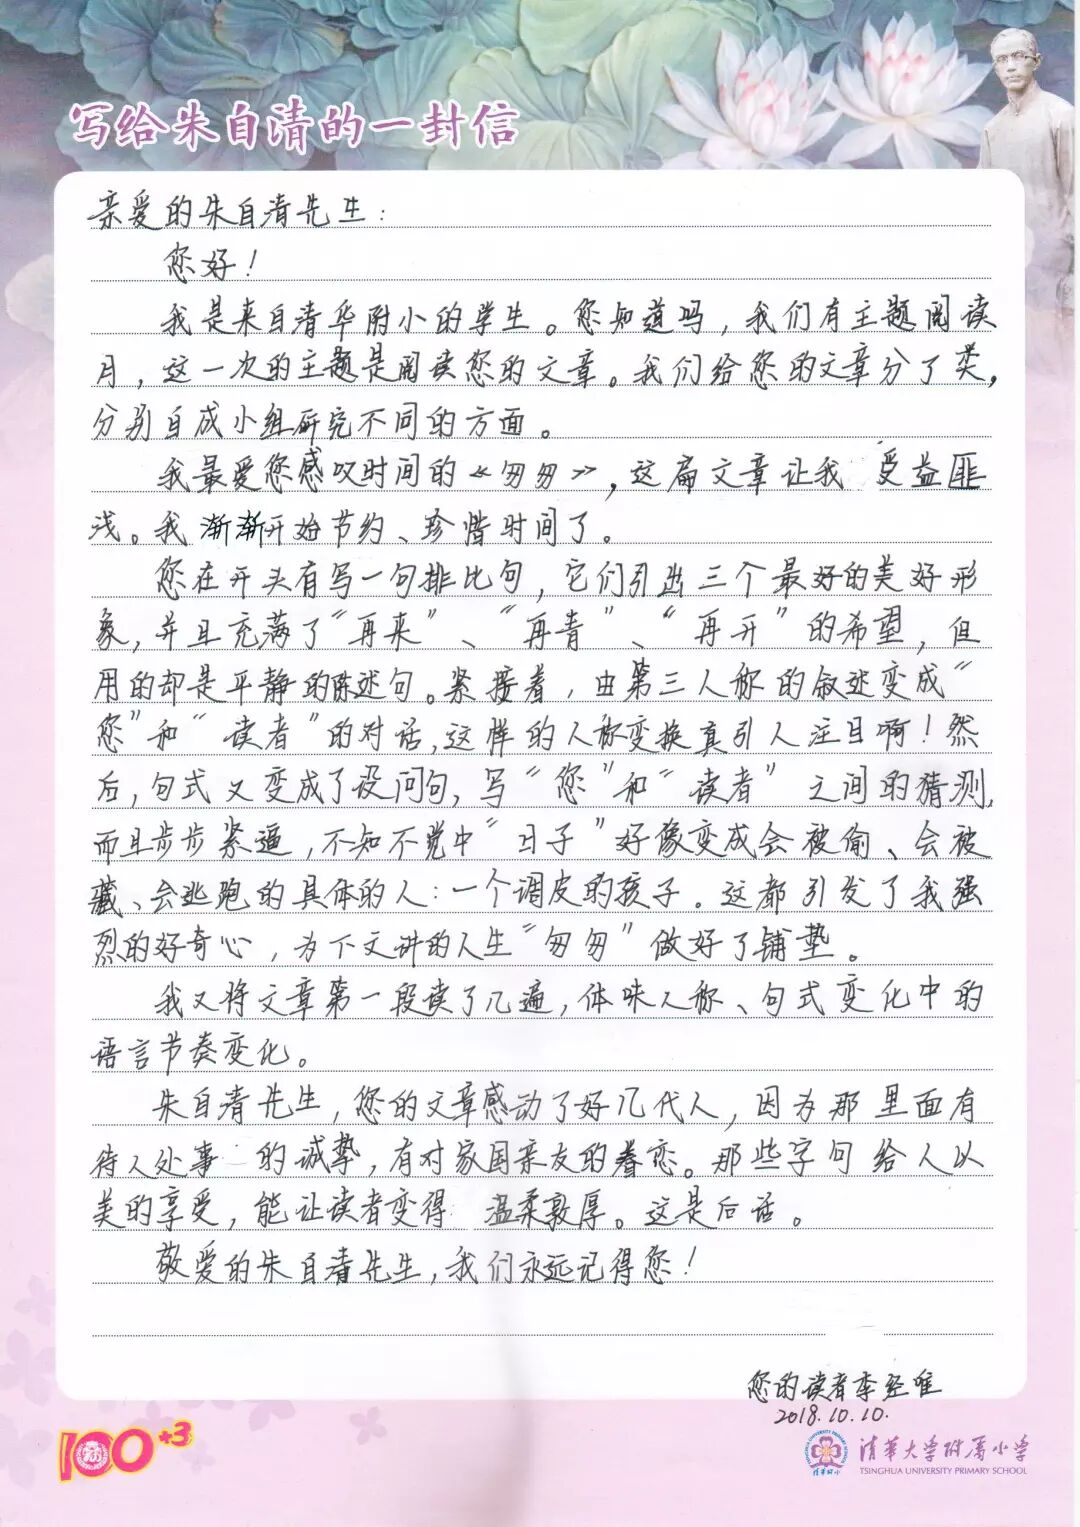 写给朱自清的一封信
亲爱的朱自清先生：
您好！
我是来自清华附小的学生。您知道吗，我们有主题阅读
月，这一次的主题是阅读您的文章。我们给您的文章分了类，
分别自成小组研究不同的方面。
我最爱您感叹时间的《匆匆》，这篇文章让我受益匪
浅。我渐渐开始节约、珍惜时间了。
您在开头有写一句排比句，它们引出三个最好的美好形
象，并且充满了“再来”、“再青”、“再开”的希望，但
用的却是平静的陈述句。紧接着，由第三人称的叙述变成“
您”和“读者”的对话，这样的人称变换真引人注目啊！然
后，句式又变成了设问句，写“您”和“读者”之间的猜测，
而且步步紧逼，不知不觉中“日子”好像变成会被偷、会被
藏、会逃跑的具体的人：一个调皮的孩子。这都引发了我强
烈的好奇心，为下文讲的人生“匆匆”做好了铺垫。
我又将文章第一段读了几遍，体味人称、句式变化中的
语言节奏变化。
朱自清先生，您的文章感动了好几代人，因为那里面有
待人处事的诚挚，有对家国亲友的眷恋。那些字句给人以
美的享受，能让读者变得温柔敦厚。这是后话。
敬爱的朱自清先生，我们永远记得您！
您的读者李经唯
2018.10.10.
100+3
清华大学附属小学
TSINGHUA UNIVERSITY PRIMARY SCHOOL
清华附小